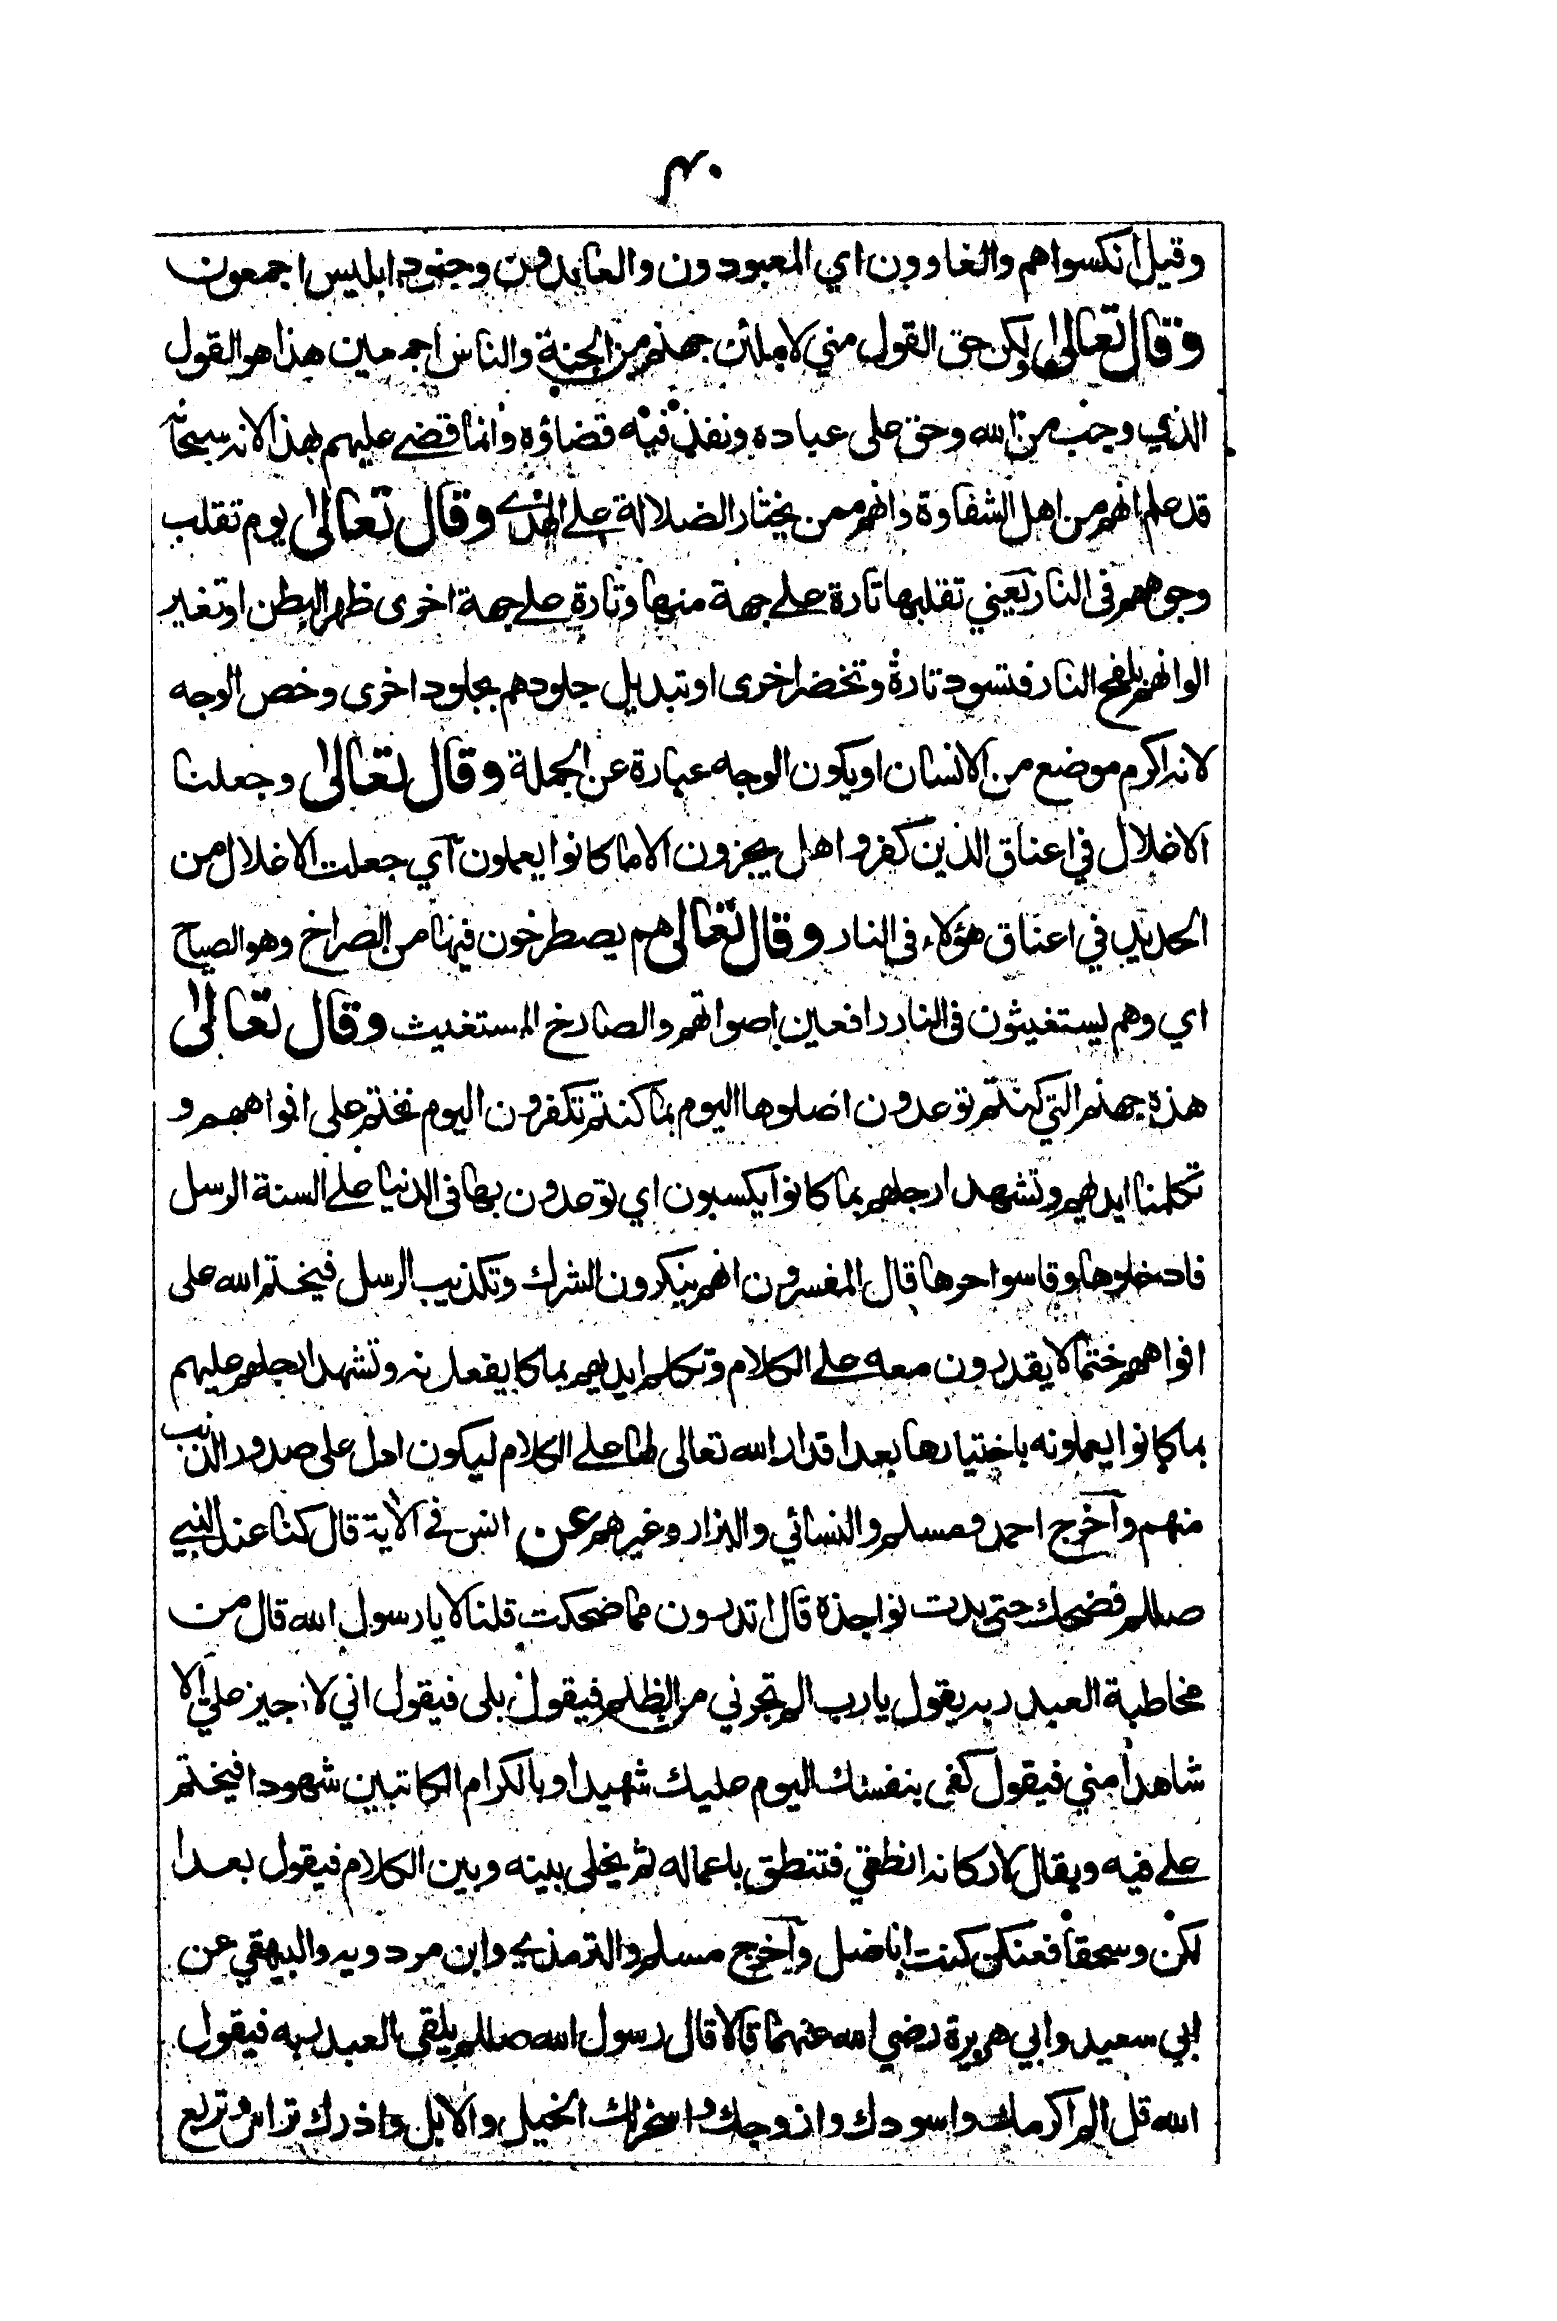 ٣٠
وقيل انكسوا هم والغاوون اي المعبودون والعابدون وجنود ابليس اجمعون
وقال تعالى ولكن حق القول مني لاملئن جهنم من الجنة والناس اجمعين هذا هو القول
الذي وجب من الله وحق على عباده ونفذ فيه قضاؤه وانما قضى عليهم بهذا لانه سبحانه
قد علم انهم من اهل الشقاوة وانهم ممن يختار الضلالة على الهدى وقال تعالى يوم تقلب
وجوههم في النار يعني تقلبها تارة على جهة منها وتارة على جهة اخرى ظهر البطن او تغير
الوانهم بلفح النار فتسود تارة وتخضر اخرى او تبديل جلودهم بجلود اخرى وخص الوجه
لانه اكرم موضع من الانسان او يكون الوجه عبارة عن الجملة وقال تعالى وجعلنا
الاغلال في اعناق الذين كفروا هل يجزون الا ما كانوا يعملون آي جعلت الاغلال من
الحديد في اعناق هؤلاء في النار وقال تعالى هم يصطرخون فيها من الصراخ وهو الصياح
اي وهم يستغيثون في النار رافعين اصواتهم والصارخ المستغيث وقال تعالى
هذه جهنم التي كنتم توعدون اصلوها اليوم بما كنتم تكفرون اليوم نختم على افواههم و
تكلمنا ايديهم وتشهد ارجلهم بما كانوا يكسبون اي توعدون بها في الدنيا على السنة الرسل
فادخلوها وقاسوا حرها قال المفسرون انهم ينكرون الشرك وتكذيب الرسل فيختم الله على
افواههم ختما لا يقدرون معه على الكلام وتكلم ايديهم بما كا يفعلونه وتشهد ارجلهم عليهم
بما كانوا يعملونه باختيارها بعد اقدار الله تعالى لها على الكلام ليكون ادل على صدور الذنب
منهم وآخرج احمد ومسلم والنسائي والبزار وغيرهم عن انس في الاية قال كنا عند النبي
صللم فضحك حتى بدت نواجذه قال اتدرون مما ضحكت قلنا لا يا رسول الله قال من
مخاطبة العبد ربه يقول يا رب الم تجرني من الظلم فيقول بلى فيقول اني لا اجيز علي الا
شاهدا مني فيقول كفى بنفسك اليوم عليك شهيدا وبالكرام الكاتبين شهودا فيختم
على فيه ويقال لاركانه انطقي فتنطق باعماله ثم يخلى بينه وبين الكلام فيقول بعدا
لكن وسحقا فعنكن كنت اناضل وآخرج مسلم والترمذي وابن مردويه والبيهقي عن
ابي سعيد وابي هريرة رضي الله عنهما قالا قال رسول الله صللم يلقى العبد ربه فيقول
الله قل الم اكرمك واسودك وازوجك واسخرلك الخيل والابل واذرك تراس وتربع